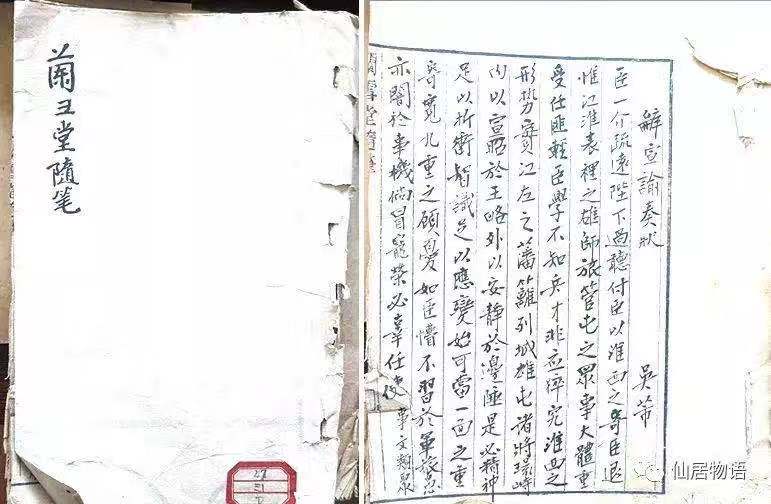 蘭彐堂隨笔
辭宣諭奏狀 吳芾
臣一介疏遠陛下過聽付臣以淮西之寄臣退
惟江淮表裡之雄師旅管屯之眾事大體重
受任匪輕臣學不知兵才非应猝究淮西之
形势實江左之藩籬列城雄屯諸將環峙
內以宣昭於王略外以安靜於邊陲是必精神
足以折衝智識足以應變始可當一面之重
寄寬九重之顧憂如臣懵不習於軍旅愚
亦闇於事機倘冒寵榮必辜任使 事文類聚
蘭雪堂隨筆
仙居物语